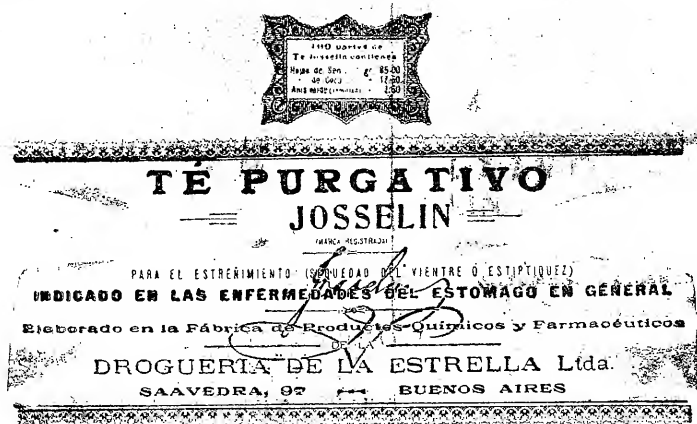 100 partes de
Te Josselin contienen
Hojas de Sen . gr 85.00
" de Coca . " 12.50
Anis verde " 2.50
TÉ PURGATIVO
JOSSELIN
(MARCA REGISTRADA)
PARA EL ESTREÑIMIENTO (SEQUEDAD DEL VIENTRE Ó ESTIPTIQUEZ)
INDICADO EN LAS ENFERMEDADES DEL ESTOMAGO EN GENERAL
Josselin
Elaborado en la Fábrica de Productos Químicos y Farmacéuticos
DE LA
DROGUERIA DE LA ESTRELLA Ltda.
SAAVEDRA, 97 BUENOS AIRES